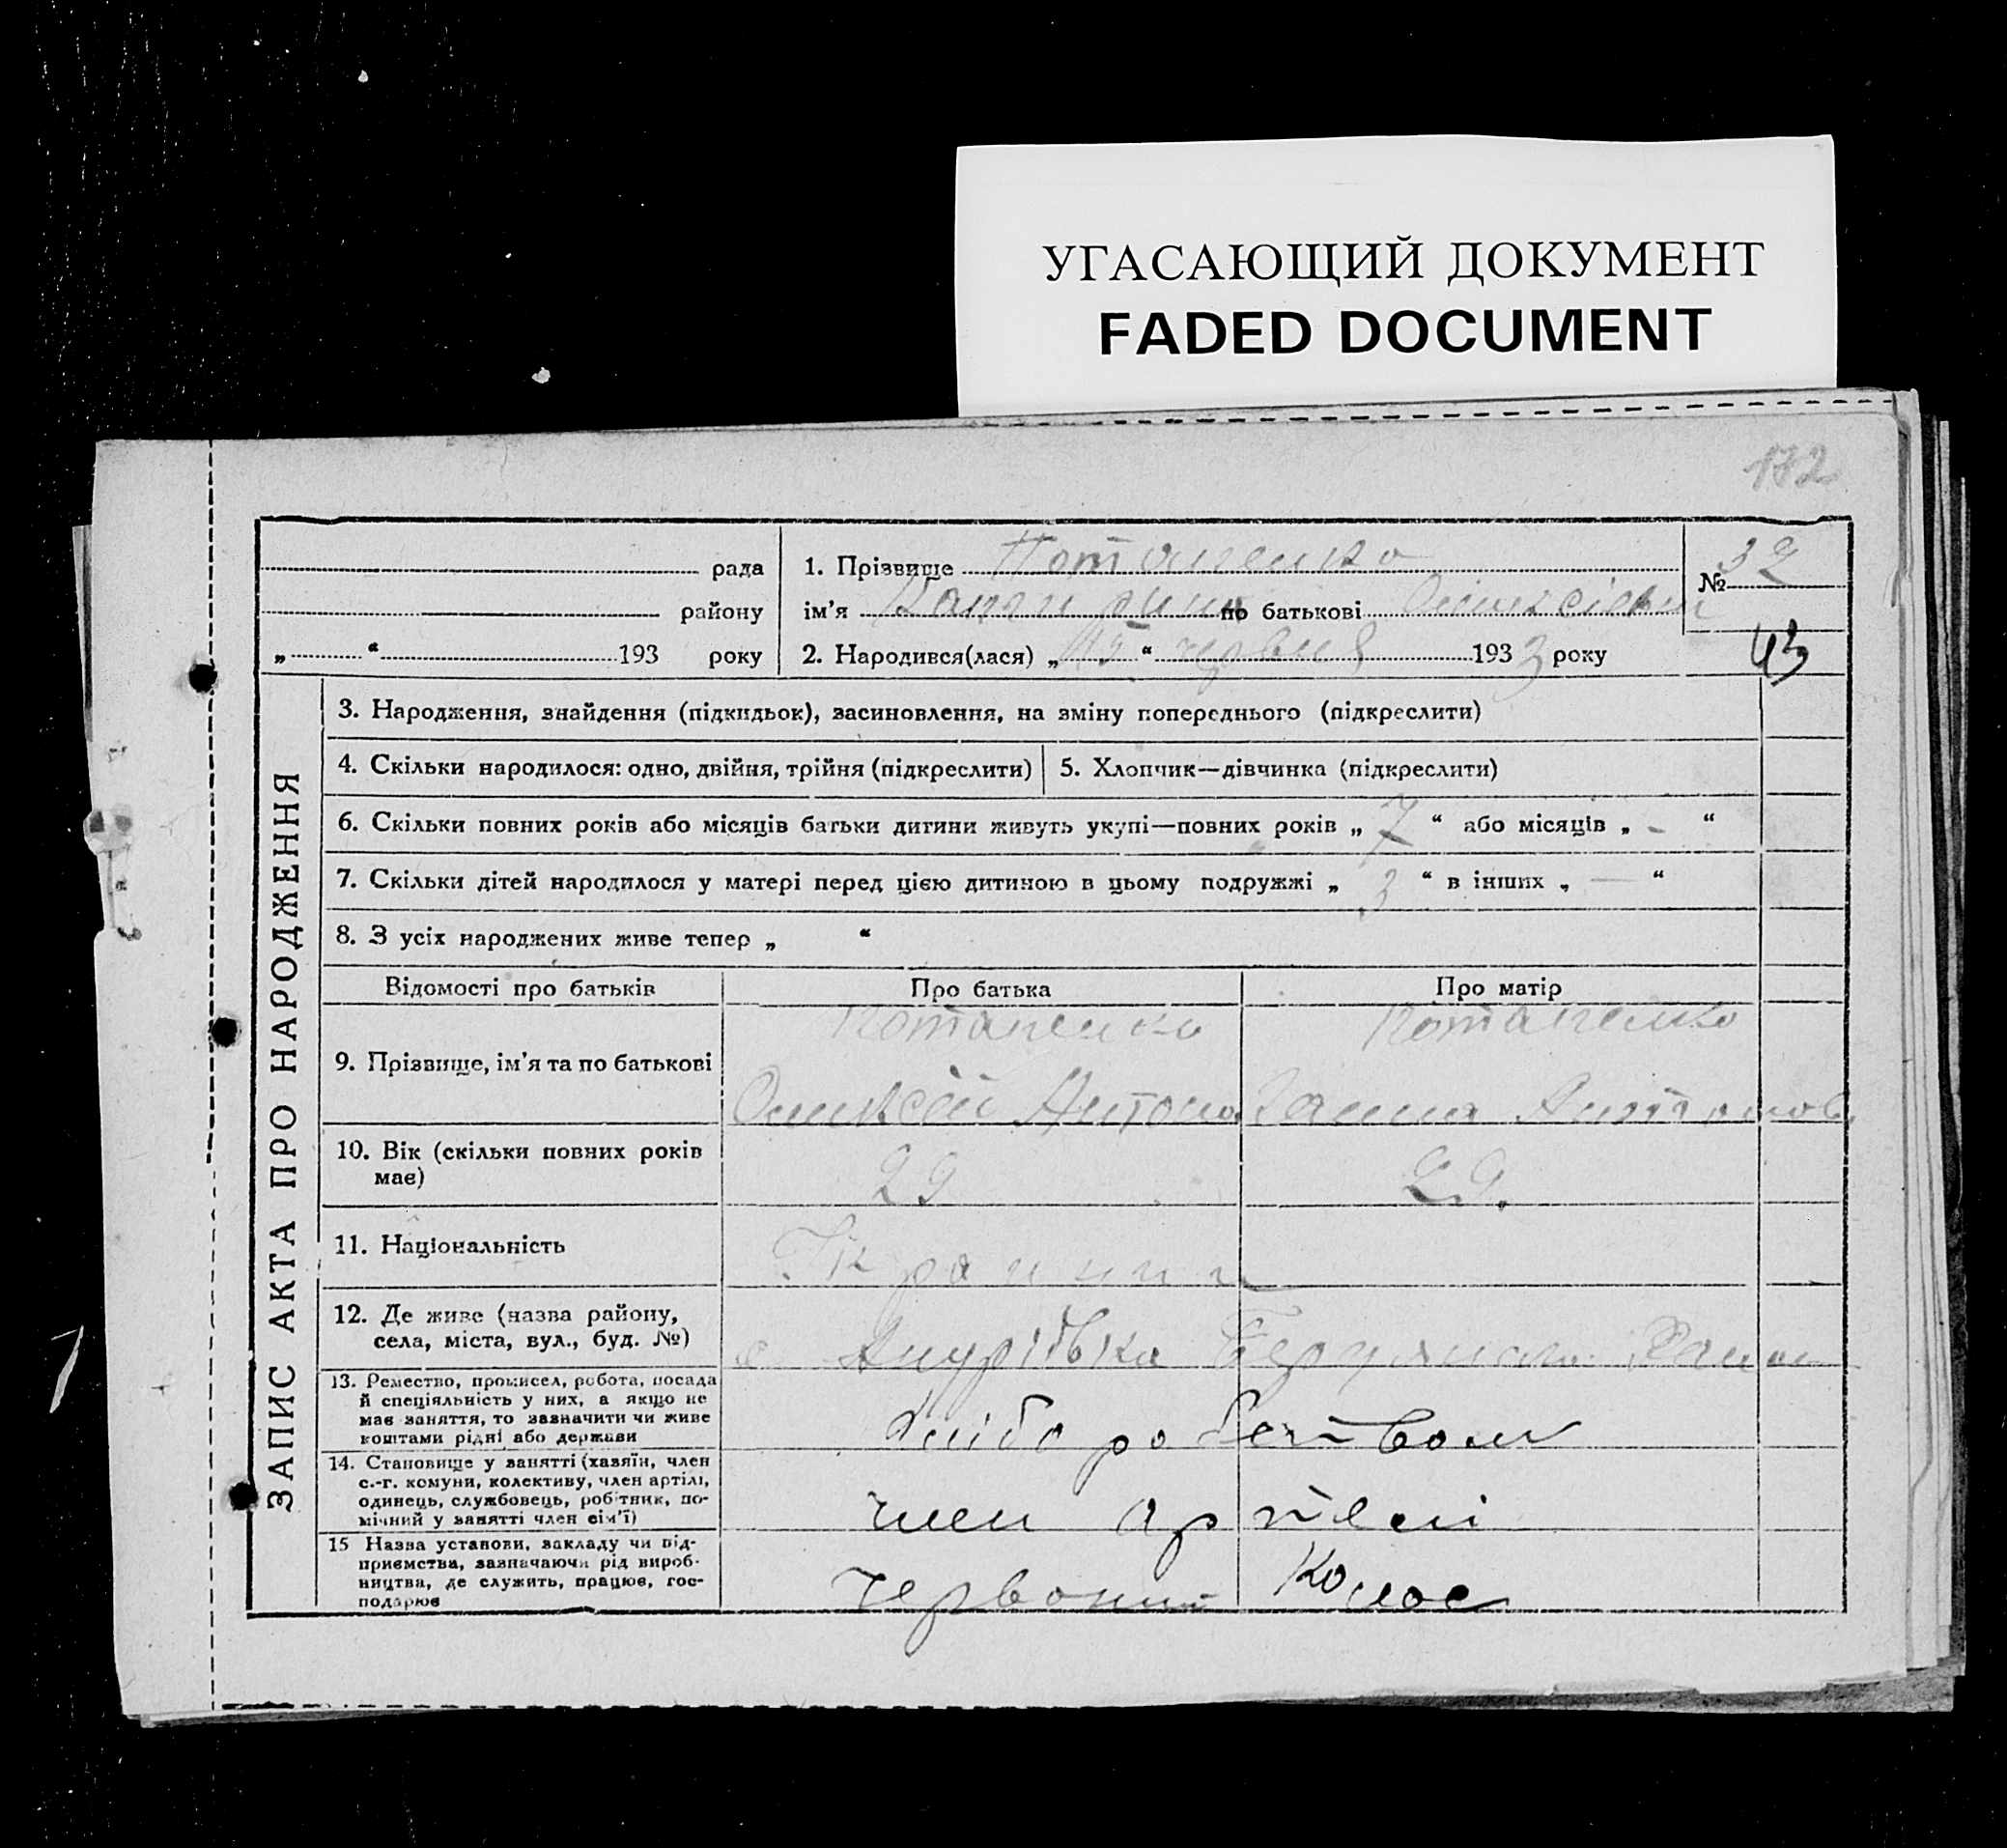 УГАСАЮЩИЙ ДОКУМЕНТ
FADED DOCUMENT
172
рада
району
„ “ 193 року
1. Прізвище Потапенко
ім’я по батькові
2. Народився(лася) „ “ червня 1933 року
№ 32
43
ЗАПИС АКТА ПРО НАРОДЖЕННЯ
3. Народження, знайдення (підкидьок), засиновлення, на зміну попереднього (підкреслити)
4. Скільки народилося: одно, двійня, трійня (підкреслити)
5. Хлопчик—дівчинка (підкреслити)
6. Скільки повних років або місяців батьки дитини живуть укупі—повних років „ 7 “ або місяців „ - “
7. Скільки дітей народилося у матері перед цією дитиною в цьому подружжі „ 3 “ в інших „ — “
8. З усіх народжених живе тепер „ “
Відомості про батьків
Про батька
Про матір
9. Прізвище, ім’я та по батькові
Потапенко
Антона
Потапенко
Ганна Антонов
10. Вік (скільки повних років
має)
29
29.
11. Національність
12. Де живе (назва району,
села, міста, вул., буд. №)
с
13. Ремество, промисел, робота, посада
й спеціяльність у них, а якщо не
має заняття, то зазначити чи живе
коштами рідні або держави
Хліборобством
14. Становище у занятті (хазяїн, член
с.-г. комуни, колективу, член артілі,
одинець, службовець, робітник, по-
мічний у занятті член сім’ї)
член артелі
15 Назва установи, закладу чи під-
приємства, зазначаючи рід вироб-
ництва, де служить, працює, гос-
подарює
Червоний Колос